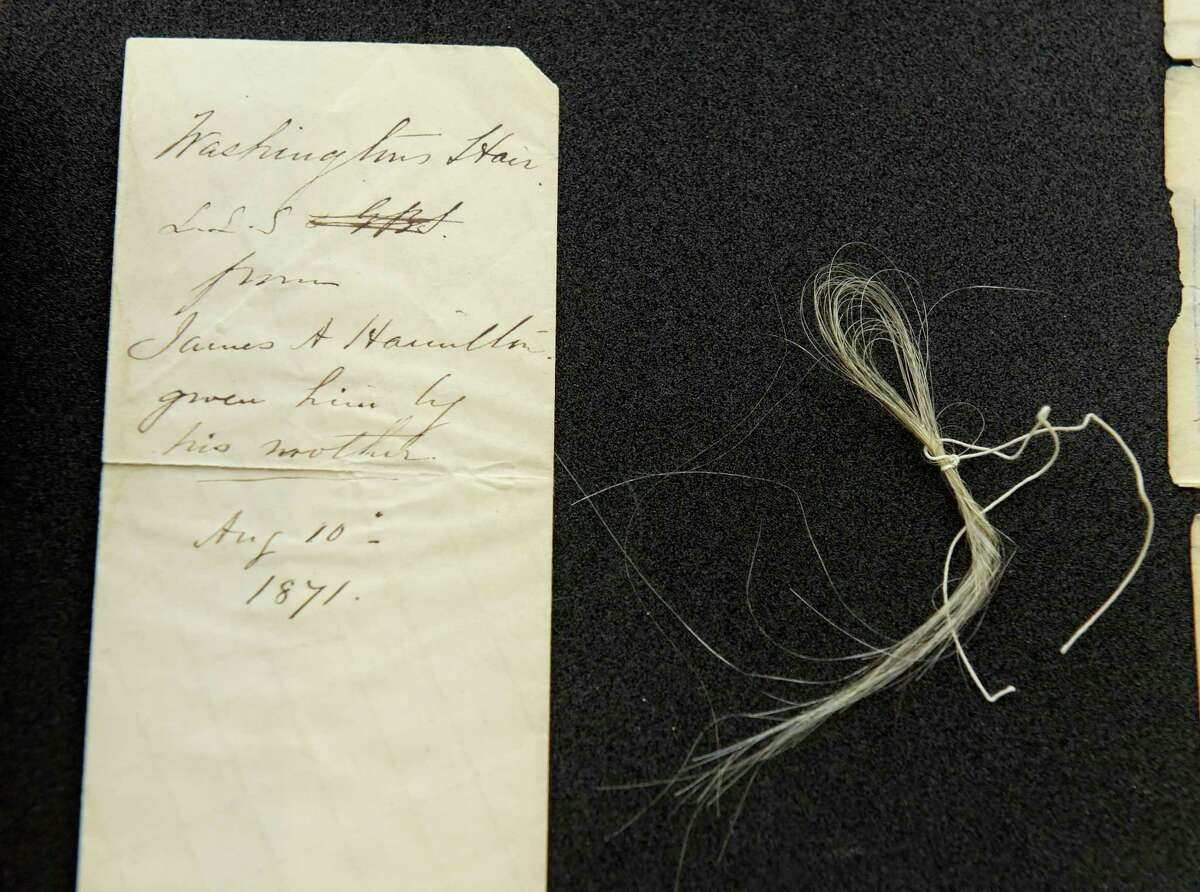 Washingtons Hair.
L.S.S GBS.
from
James A Hamilton.
given him by
his mother.
Aug 10
1871.